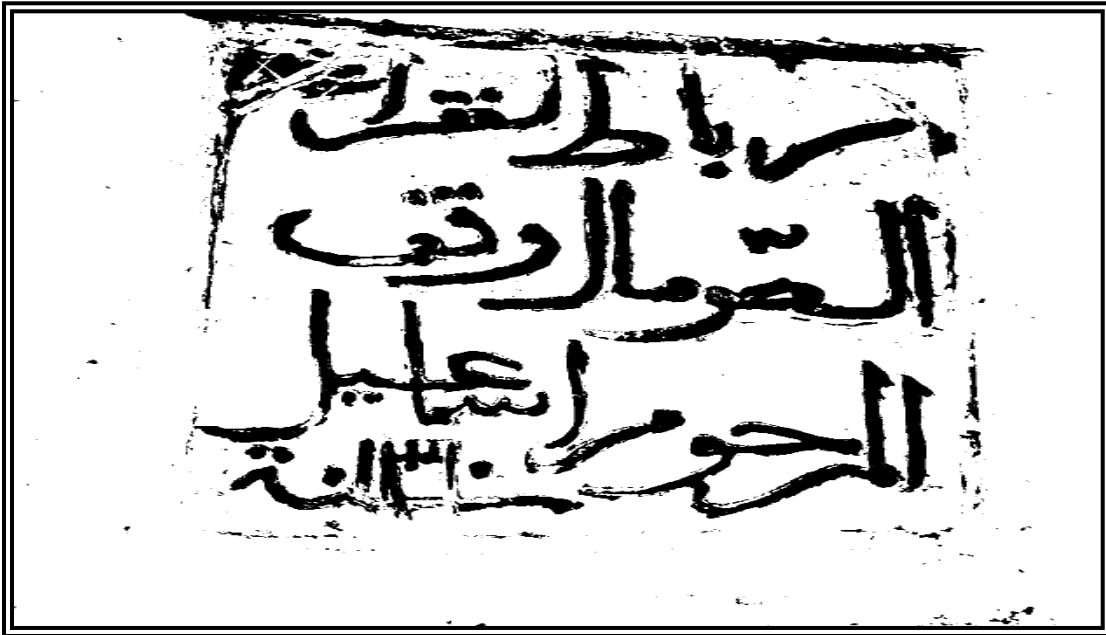 رباط الفقرا
الصّومال وقف
المرحوم اسماعيل
سنة ١٣١٠